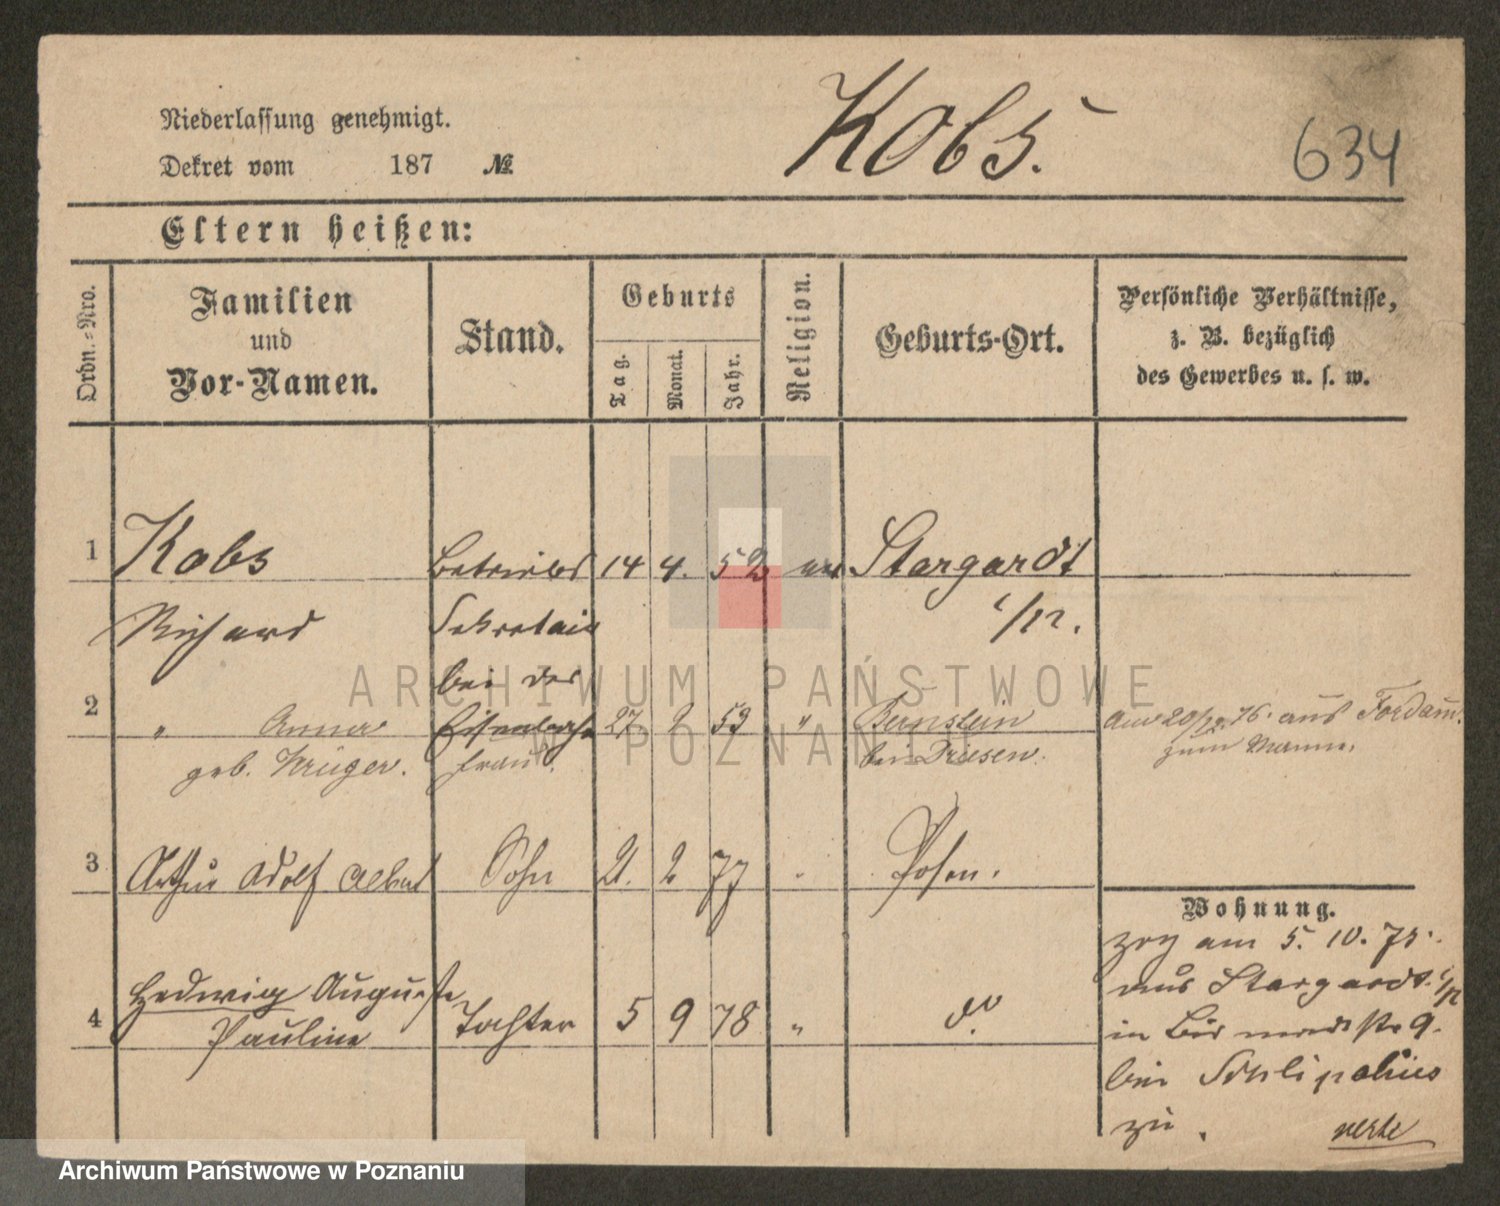 Niederlassung genehmigt.
Dekret vom 187 №
Kobs.
634
Eltern heißen:
Ordn.=Nro.
Familien
und
Vor-Namen.
Stand.
Geburts
Tag.
Monat.
Jahr.
Religion.
Geburts-Ort.
Persönliche Verhältnisse,
z. B. bezüglich
des Gewerbes u. s. w.
1 Kobs Betriebs 14 4. 52 Stargardt
Richard Sekretair i/P.
bei der
Eisenbahn
2 " Anna 27. 2 53 " Bernstein 76. aus Fordam.
geb. Krüger. Frau. bei Driesen. zum Manne.
3 Arthur Adolf Albert Sohn 21. 2 77 Posen.
Wohnung.
4 Hedwig Auguste Tochter 5 9 78 " do
Pauline
zog am 5. 10. 75.
aus Stargardt i/P
in 9.
bei
zu.
verte
ARCHIWUM PAŃSTWOWE
W POZNANIU
Archiwum Państwowe w Poznaniu